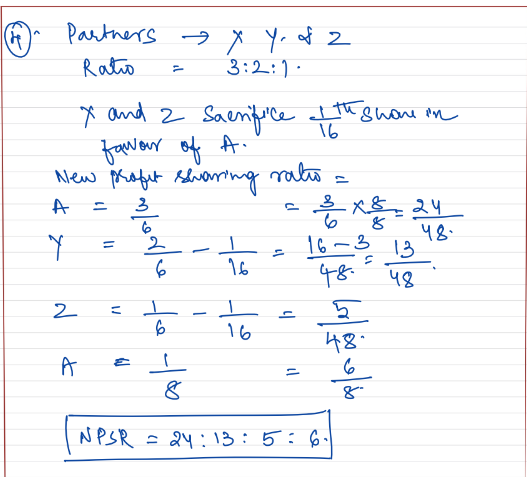 4. Partners → X Y. & Z
Ratio = 3:2:1.
X and Z Sacrifice 1/16 th share in
favour of A.
New profit sharing ratio =
A = 3/6 = 3/6 × 8/8 = 24/48.
Y = 2/6 - 1/16 = 16-3/48. = 13/48.
Z = 1/6 - 1/16 = 5/48.
A = 1/8 = 6/8.
NPSR = 24:13:5:6.